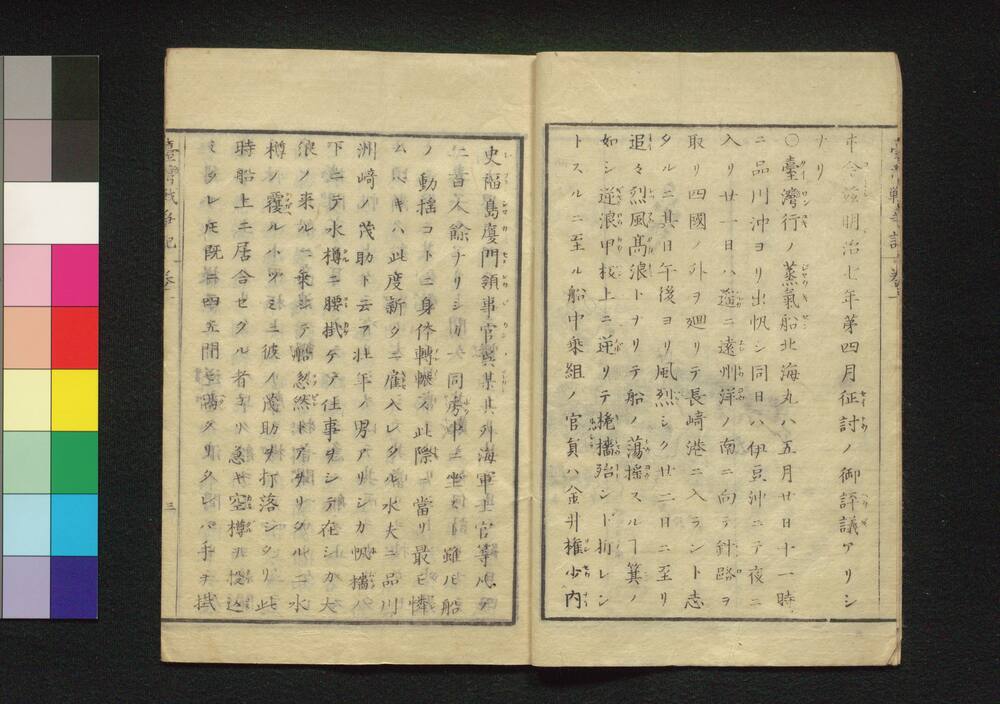 ナリ
〇臺灣行ノ蒸氣船北海丸ハ五月廿日十一時
ニ品川沖ヨリ出帆シ同日ハ伊豆沖ニテ夜ニ
入リ廿一日ハ遥ニ遠州洋ノ南ニ向テ針路ヲ
取リ四國ノ外ヲ廻リテ長崎港ニ入ラント志
タルニ其日午後ヨリ風烈シク廿二日ニ至リ
追々烈風髙浪トナリテ船ノ蕩揺スルヿ箕ノ
如シ逆浪甲板上ニ逆リテ桅檣殆ンド折レン
トスルニ至ル船中乗組ノ官員ハ金井権少内
史福島廈門領事官其外海軍士官等
百人餘ナリシカ一同房中ニ坐スト雖𪜈船
ノ動揺コトニ身体轉輾ス此際ニ當リ最モ憐
ムヘキハ此度新タニ雇入レタル水夫ニ品川
洲崎ノ茂助ト云フ壮年ノ男アリシカ帆檣ノ
下ニテ水樽ニ腰掛ケテ仕事ヲシテ在シカ大
浪ノ来ルニ乗シテ船忽然ト
樽ノ覆ル彼ノ茂助ヲ打落シタリ此
時船上ニ居合セタル者ヨリ急キ空樽ヲ投込
既ニ四五間
臺灣戰争記 巻一
三